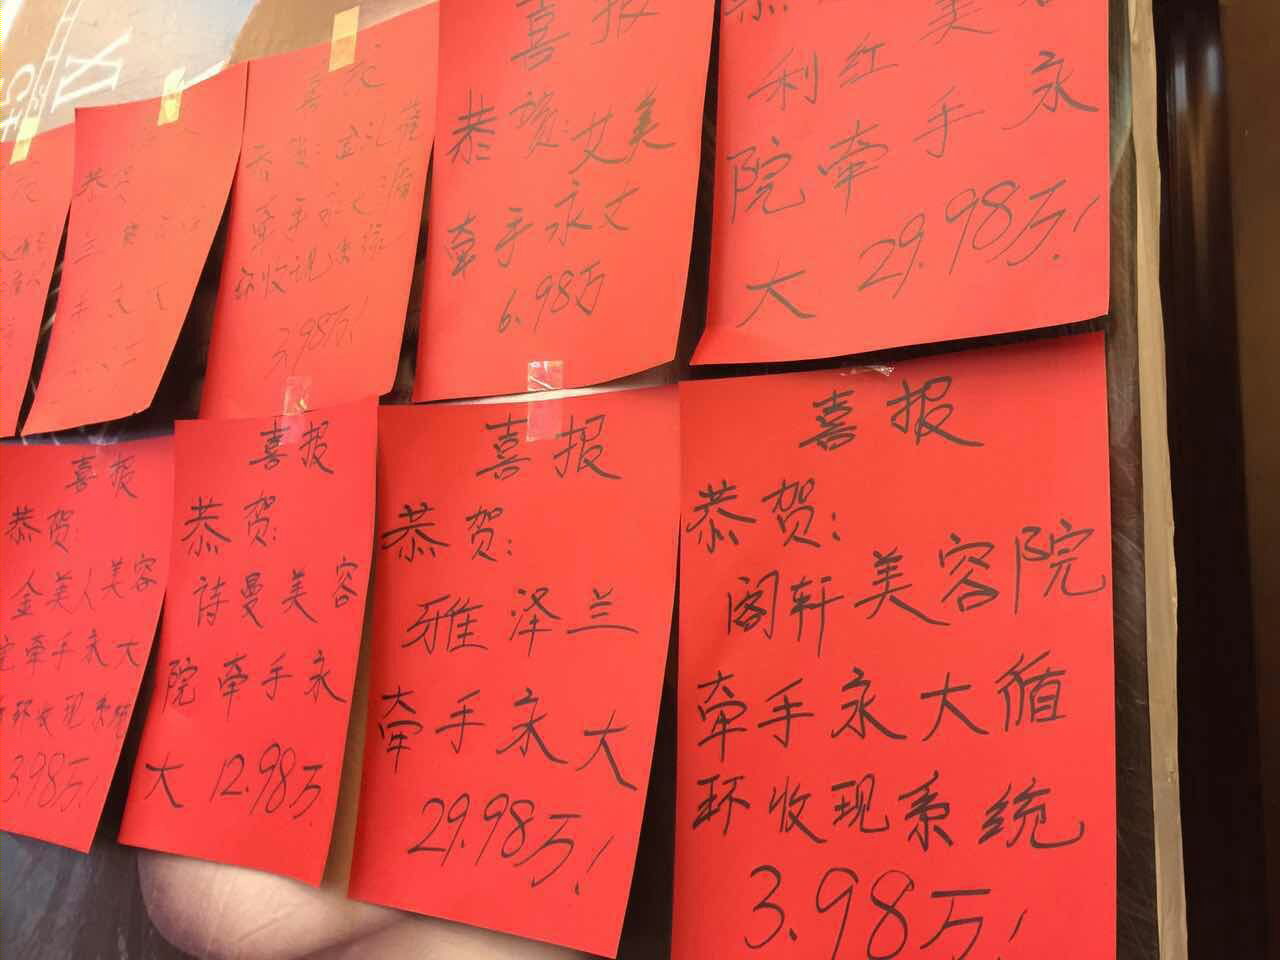 喜报
恭贺:宜汇蓮
牵手永大循
环收现系统
3.98万!
喜报
恭賀:艾美
牵手永大
6.98万
利红美容
院牵手永
大 29.98万!
喜报
恭贺:
金美人美容
院牵手永大
循环收现系统
3.98万!
喜报
恭贺:
诗曼美容
院牵手永
大 12.98万!
喜报
恭贺:
雅泽兰
牵手永大
29.98万!
喜报
恭贺:
阁轩美容院
牵手永大循
环收现系统
3.98万!